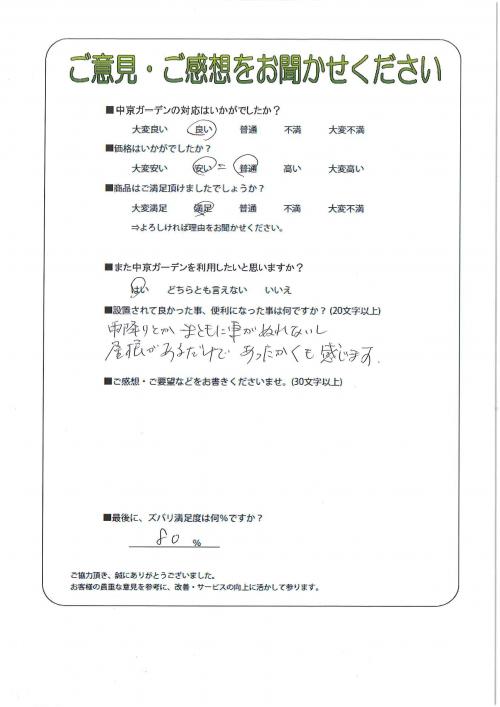 ご意見・ご感想をお聞かせください
■中京ガーデンの対応はいかがでしたか？
大変良い 良い 普通 不満 大変不満
■価格はいかがでしたか？
大変安い 安い = 普通 高い 大変高い
■商品はご満足頂けましたでしょうか？
大変満足 満足 普通 不満 大変不満
⇒よろしければ理由をお聞かせください。
■また中京ガーデンを利用したいと思いますか？
はい どちらとも言えない いいえ
■設置されて良かった事、便利になった事は何ですか？(20文字以上)
雨降りとか まともに車がぬれないし
屋根があるだけで あったかくも感じます.
■ご感想・ご要望などをお書きくださいませ。(30文字以上)
■最後に、ズバリ満足度は何%ですか？
80 %
ご協力頂き、誠にありがとうございました。
お客様の貴重な意見を参考に、改善・サービスの向上に活かして参ります。